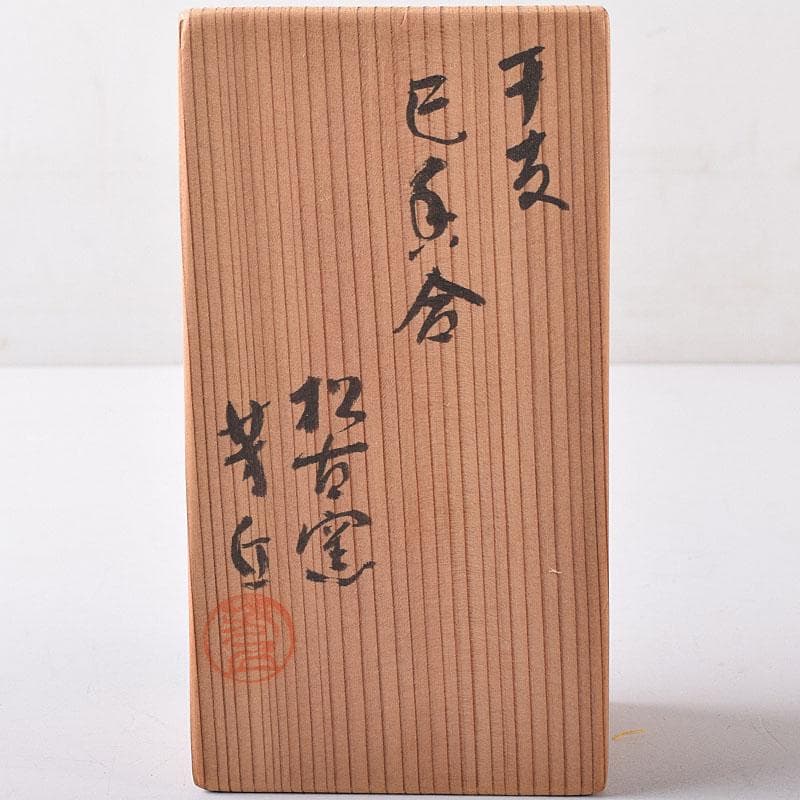 干支
巳香合
松古窯
芳丘